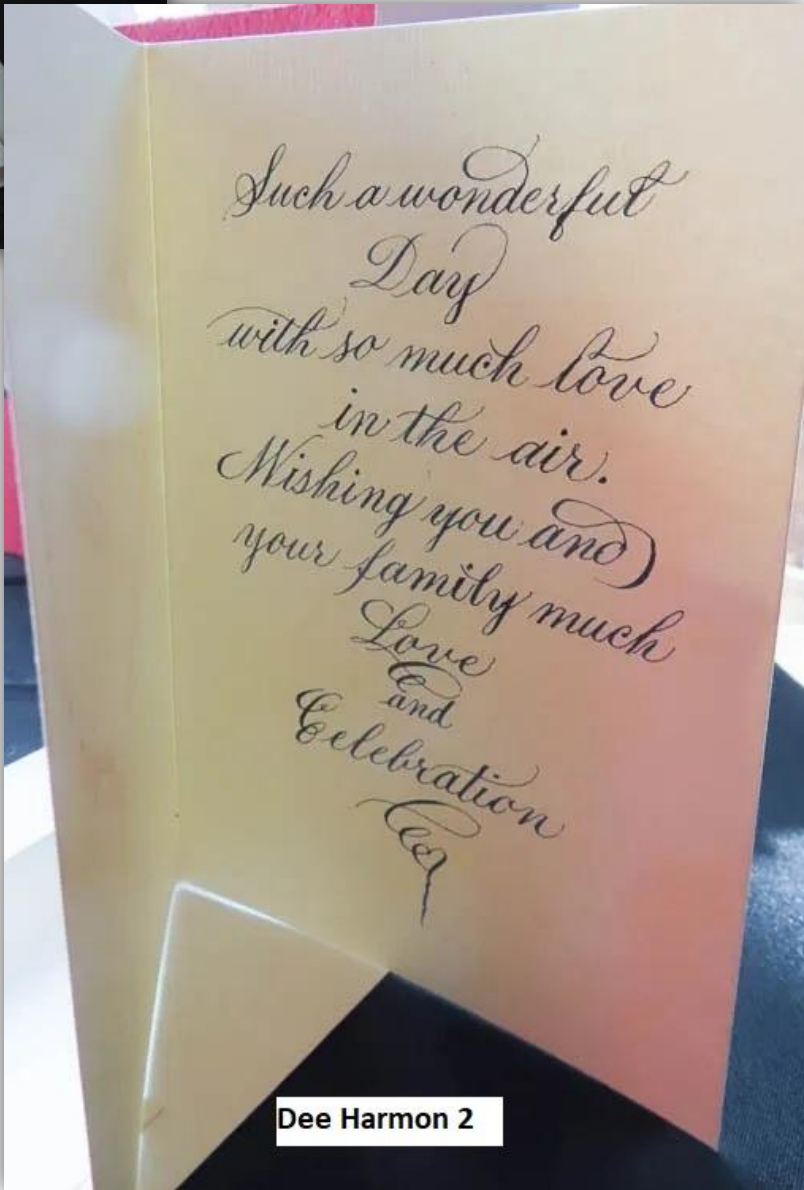 Such a wonderful
Day
with so much love
in the air.
Wishing you and
your family much
Love
and
Celebration
Dee Harmon 2